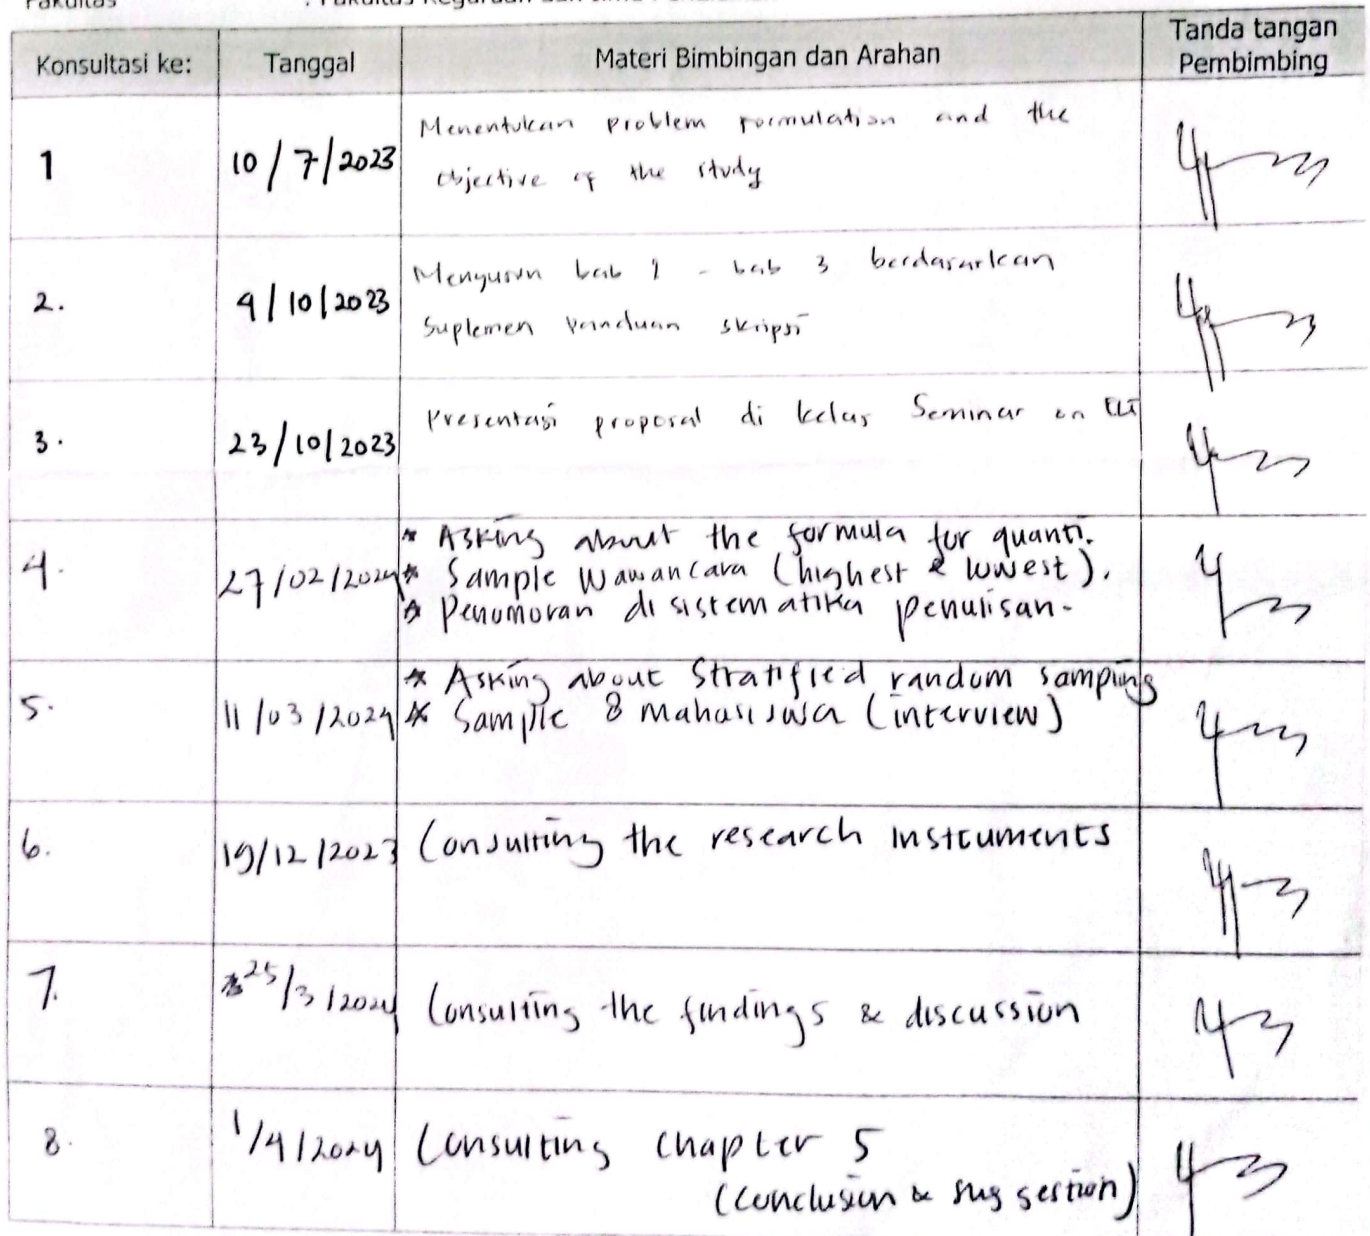 Fakultas : Fakultas Keguruan dan Ilmu
Konsultasi ke: Tanggal Materi Bimbingan dan Arahan Tanda tangan
Pembimbing
1 10/7/2023 Menentukan problem formulation and the
objective of the study
2. 9/10/2023 Menyusun bab 1 - bab 3 berdasarkan
Suplemen panduan skripsi
3. 23/10/2023 Presentasi proposal di kelas Seminar on ELT
4. 27/02/2024 * Asking about the formula for quanti.
* Sample wawancara (highest & lowest).
* Penomoran di sistematika penulisan.
5. 11/03/2024 * Asking about Stratified random sampling
* Sample 8 mahasiswa (interview)
6. 19/12/2023 Consulting the research instruments
7. 25/3/2024 Consulting the findings & discussion
8. 1/4/2024 Consulting chapter 5
(conclusion & suggestion)